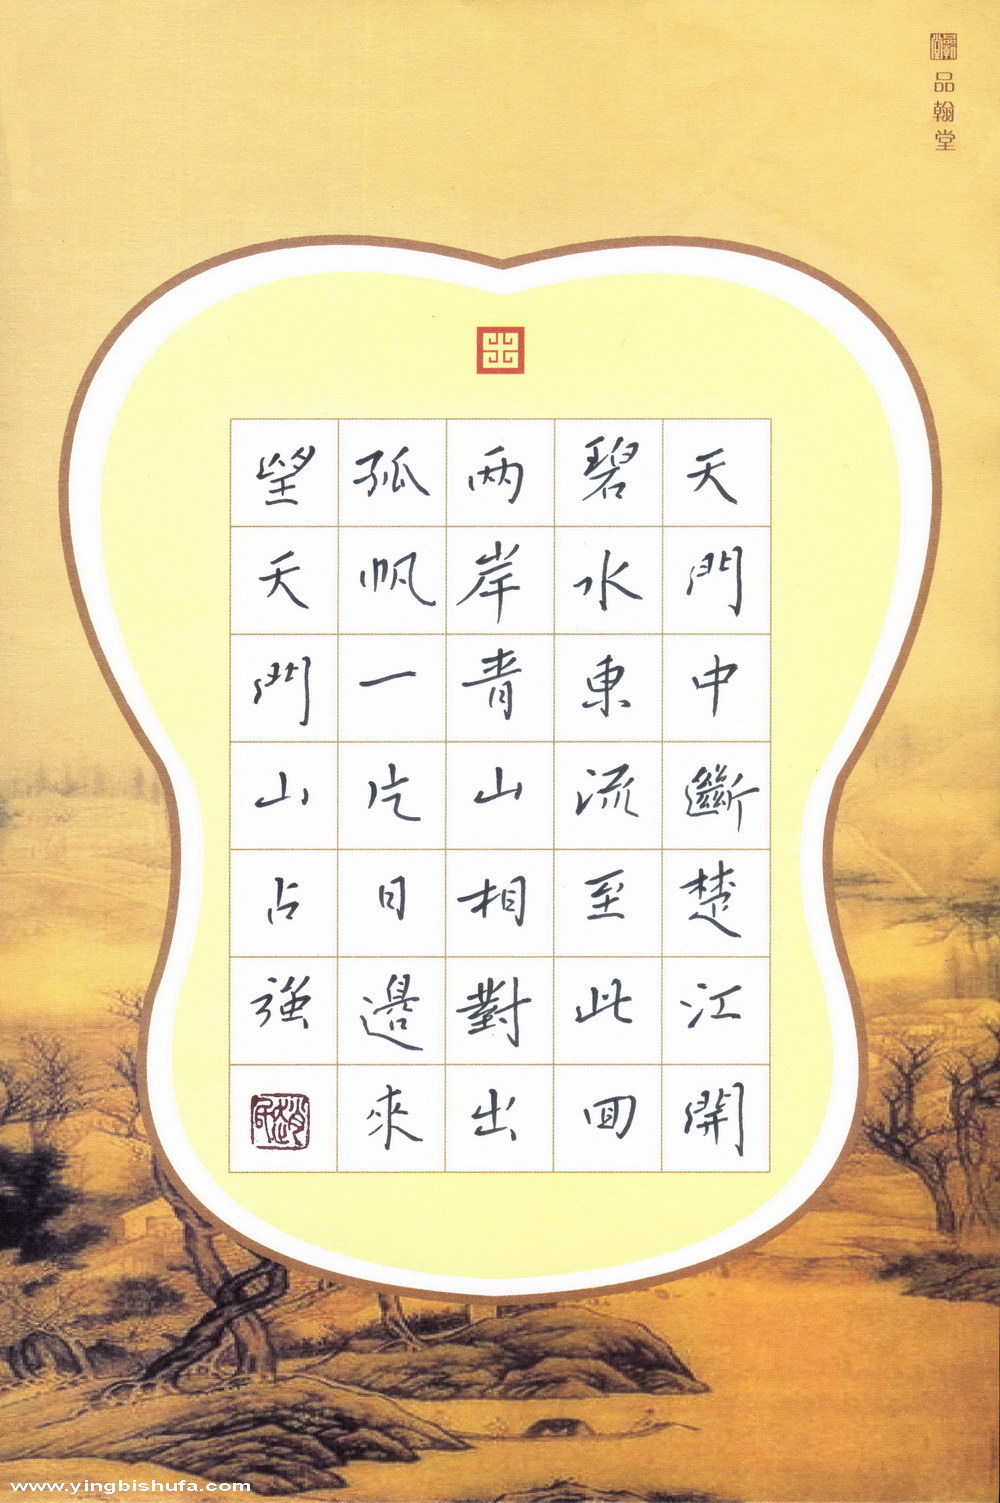 品翰堂
天門中斷楚江開
碧水東流至此回
两岸青山相對出
孤帆一片日邊來
望天門山占強
www.yingbishufa.com